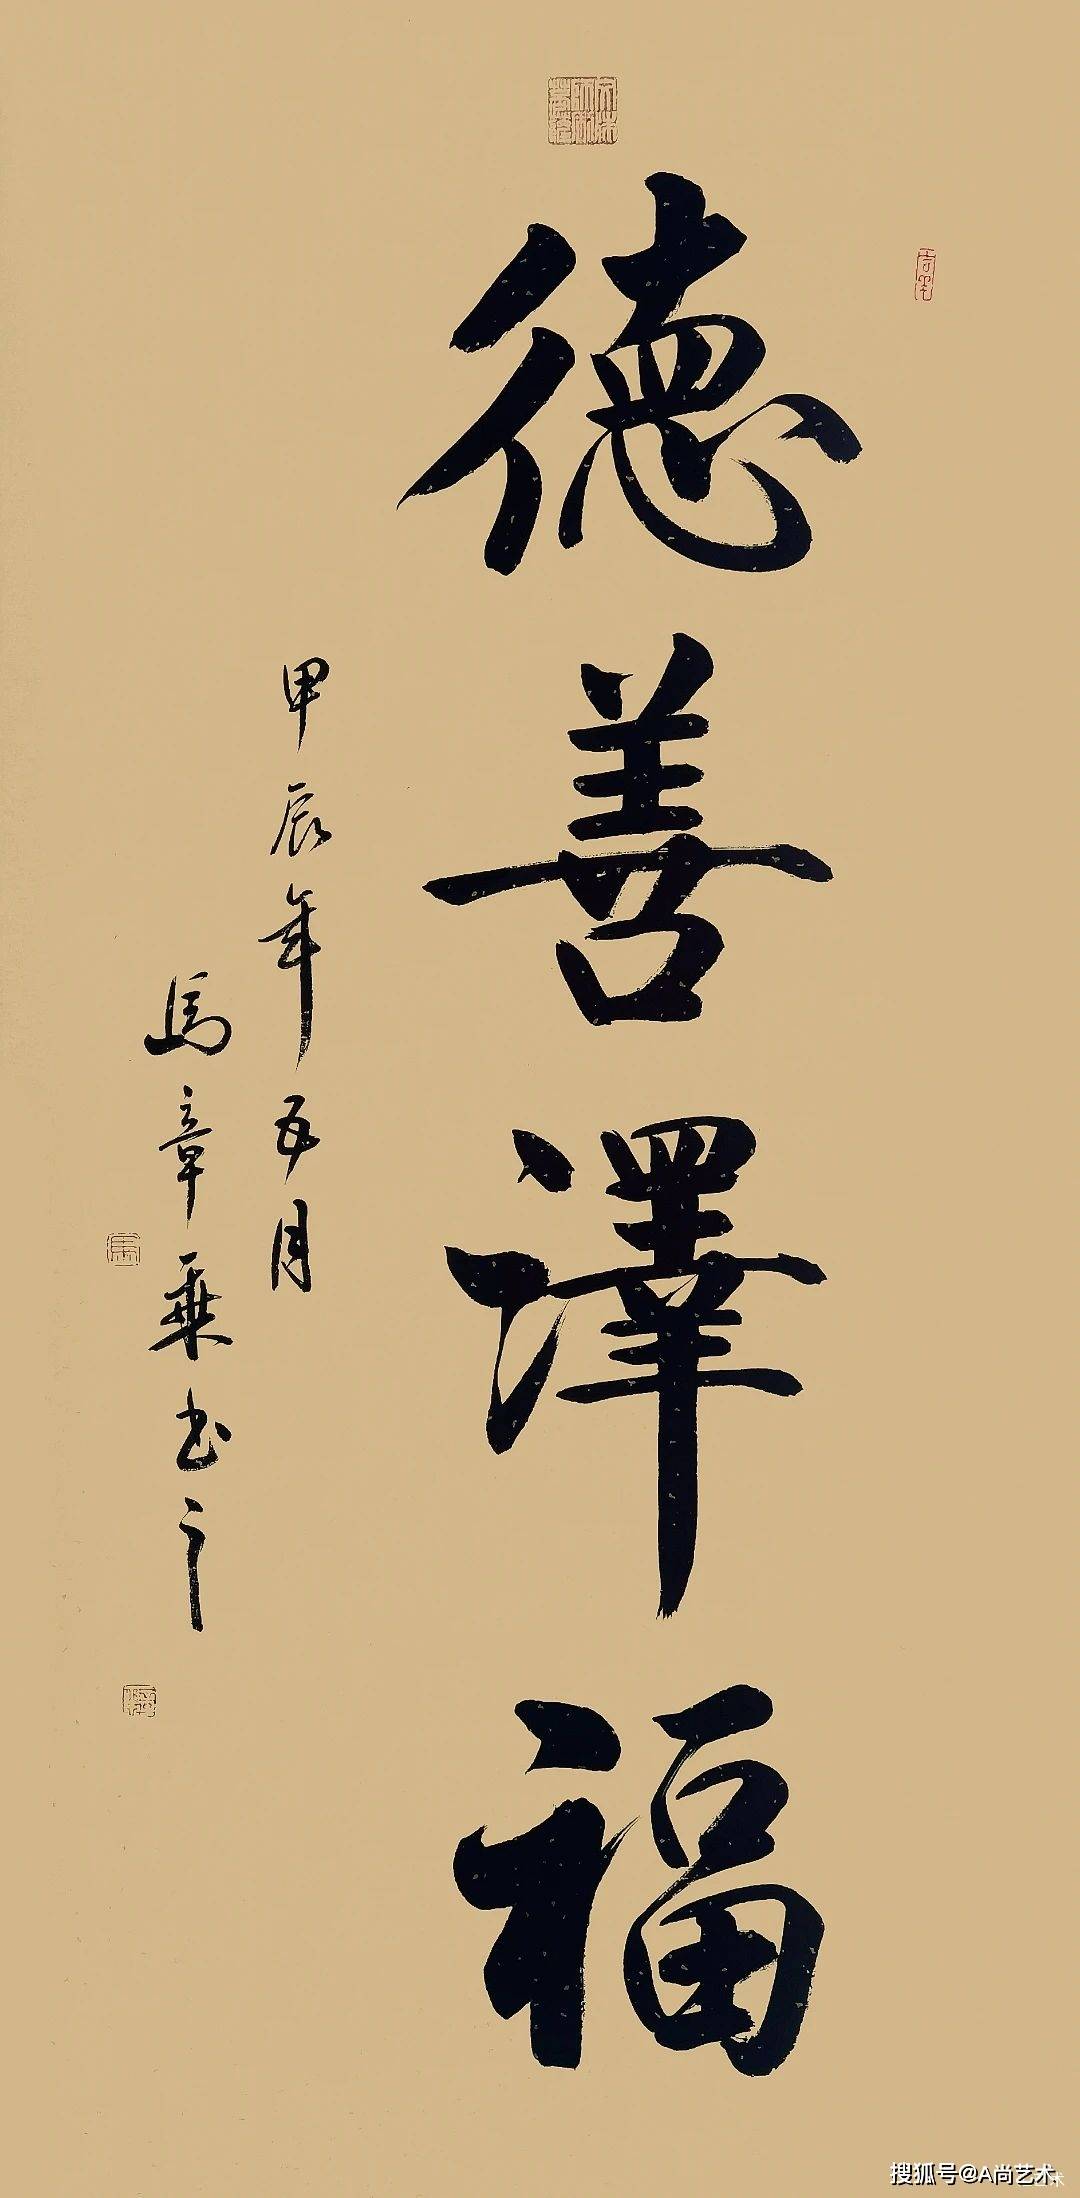 德善澤福
甲辰年五月
馬章乘书之
搜狐号@A尚艺术